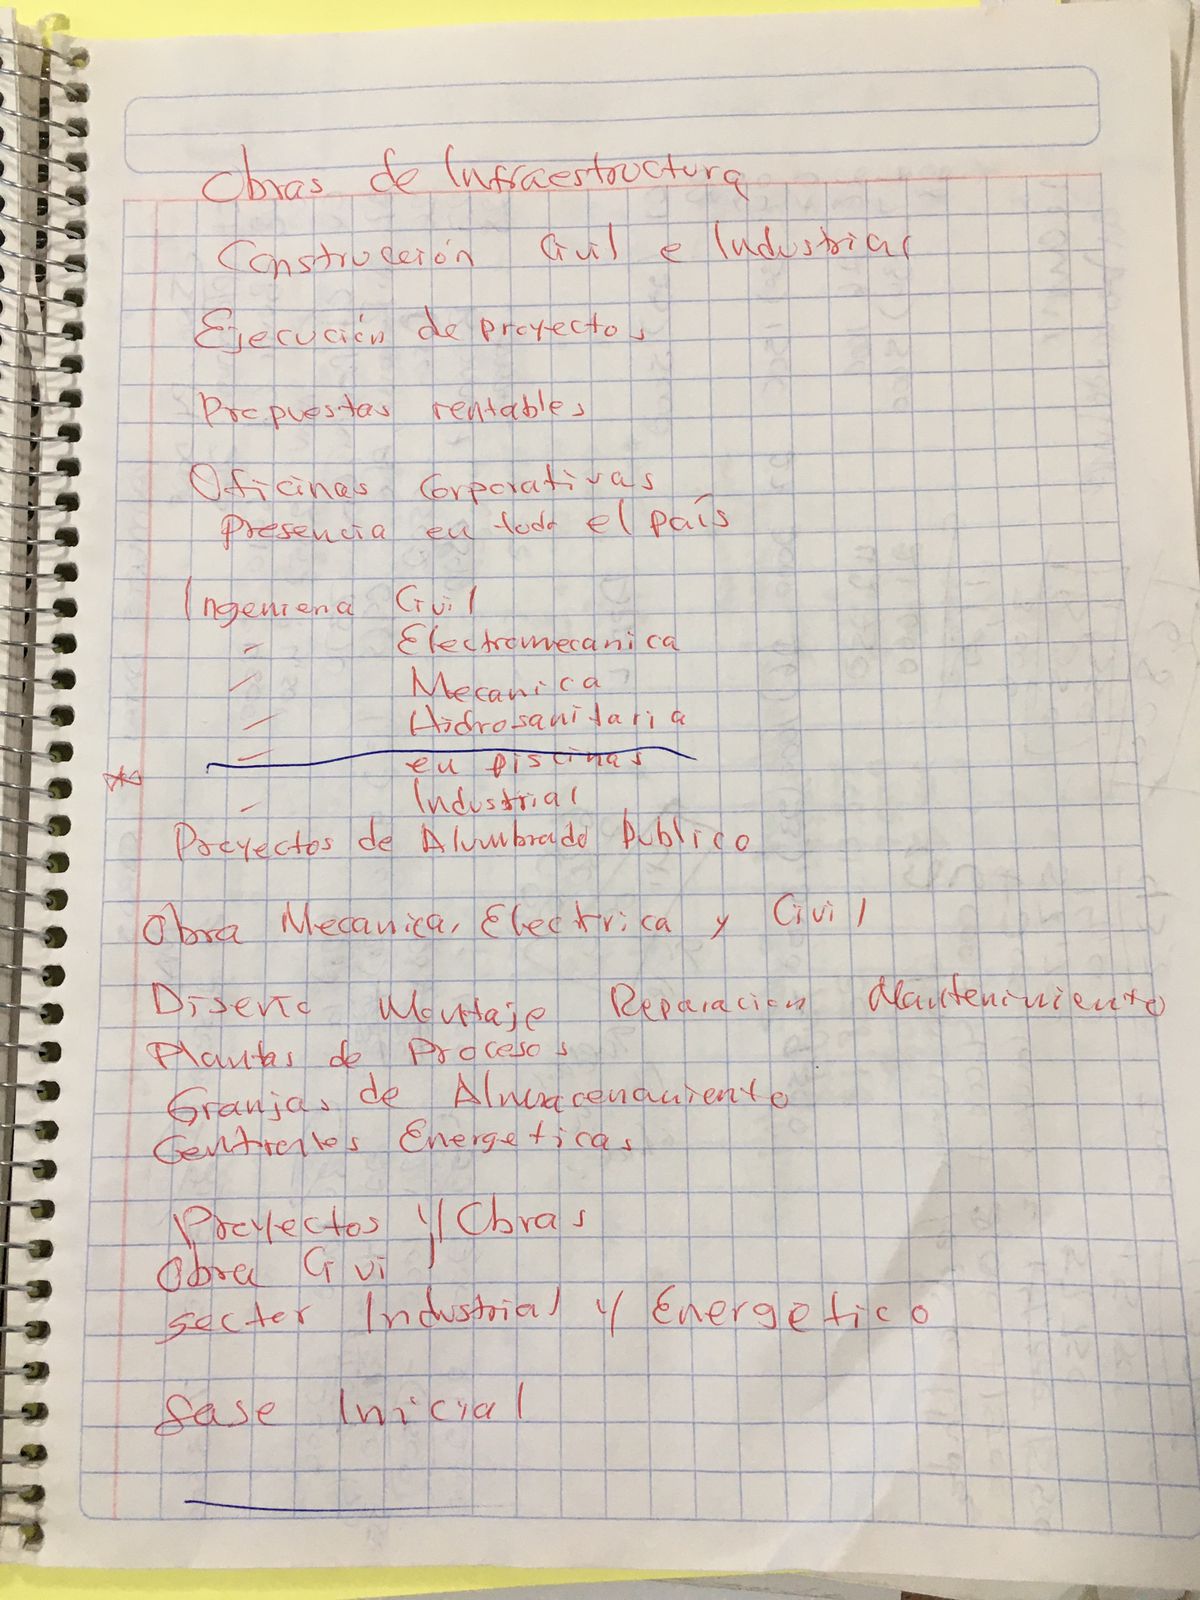 Obras de Infraestructura
Construcción Civil e Industrial
Ejecución de proyectos
Propuestas rentables
Oficinas Corporativas
Presencia en todo el país
Ingenieria Civil
" Electromecanica
" Mecanica
" Hidrosanitaria
" en piscinas
" Industrial
Proyectos de Alumbrado Publico
Obra Mecanica, Electrica y Civil
Diseño Montaje Reparacion Mantenimiento
Plantas de Procesos
Granjas de Almacenamiento
Centrales Energeticas
Proyectos y Obras
Obra Civil
Sector Industrial y Energetico
fase Inicial